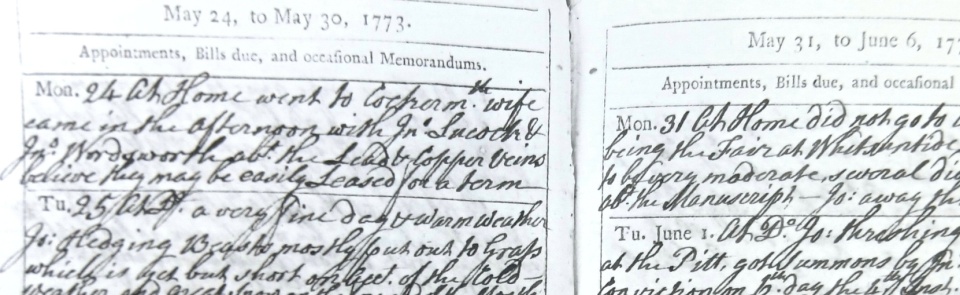 May 24, to May 30, 1773.
Appointments, Bills due, and occaſional Memorandums.
Mon. 24 At Home went to Cockerm.th wife
came in the afternoon with Jn.o Lucock &
Jn.o Wordsworth ab.t the Lead & Copper Veins
believe they may be easily Leased for a term
Tu. 25 At D.o a very fine day & warm weather
Jo: Hedging Beasts mostly put out to Grass
which is yet but short on acc.t of the Cold
weather and great
May 31, to June 6, 177
Appointments, Bills due, and occaſional
Mon. 31 At Home did not go to
being the Fair at Whitsuntide
to be very moderate, several
ab.t the Manuscript — Jo: away
Tu. June 1. At D.o Jo: threshing
at the Pitt, got summons by Jn.
Conviction on day the